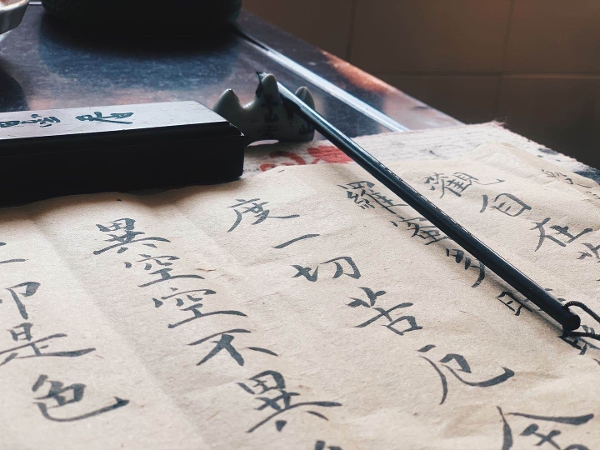 觀自在
羅蜜多時照
度一切苦厄舍
異空空不異
即是色